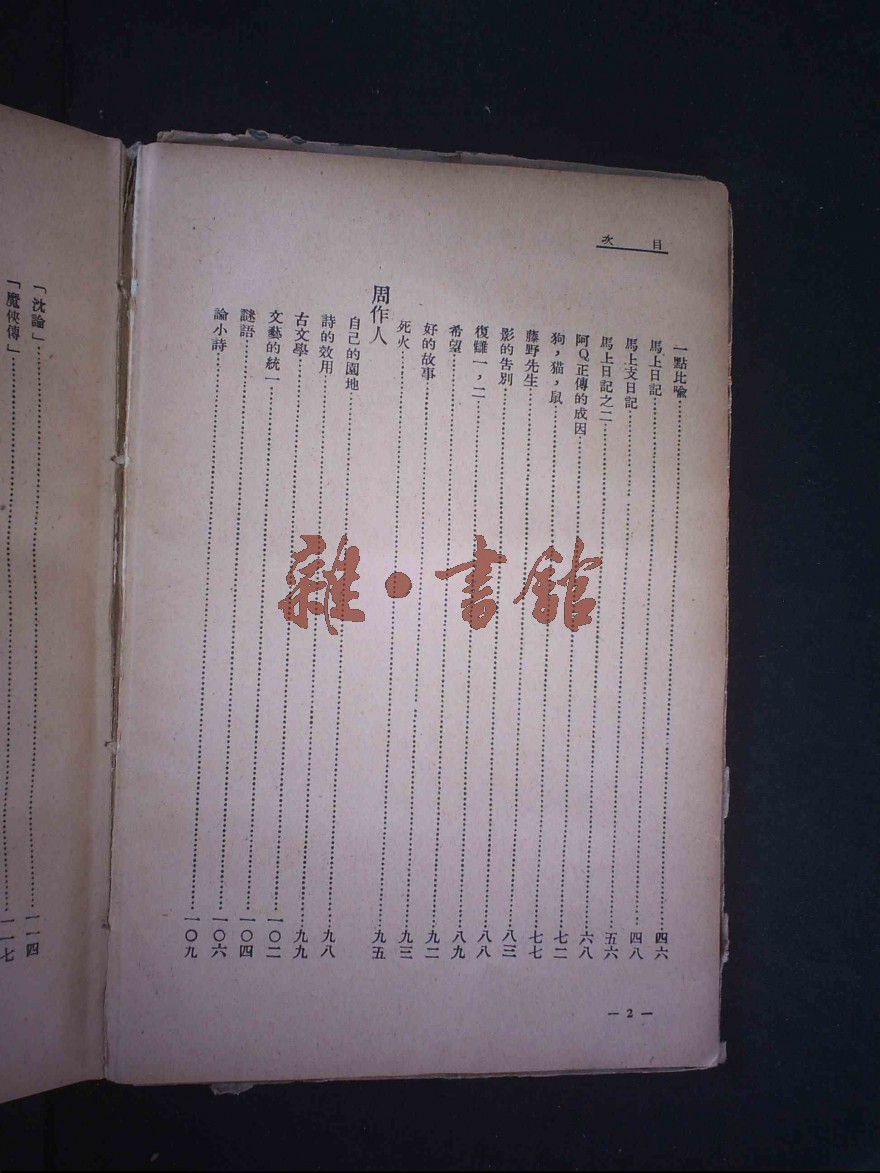 目次
一點比喻……四六
馬上日記……四八
馬上支日記……五六
馬上日記之二……六八
阿Q正傳的成因……七二
狗，猫，鼠……七七
藤野先生……八三
影的告別……八八
復讎一，二……八九
希望……九二
好的故事……九三
死火……九五
周作人
自己的園地……九八
詩的效用……九九
古文學……一〇二
文藝的統一……一〇四
謎語……一〇六
論小詩……一〇九
— 2 —
「沈論」……一一四
「魔俠傳」……一一七
雜·書館